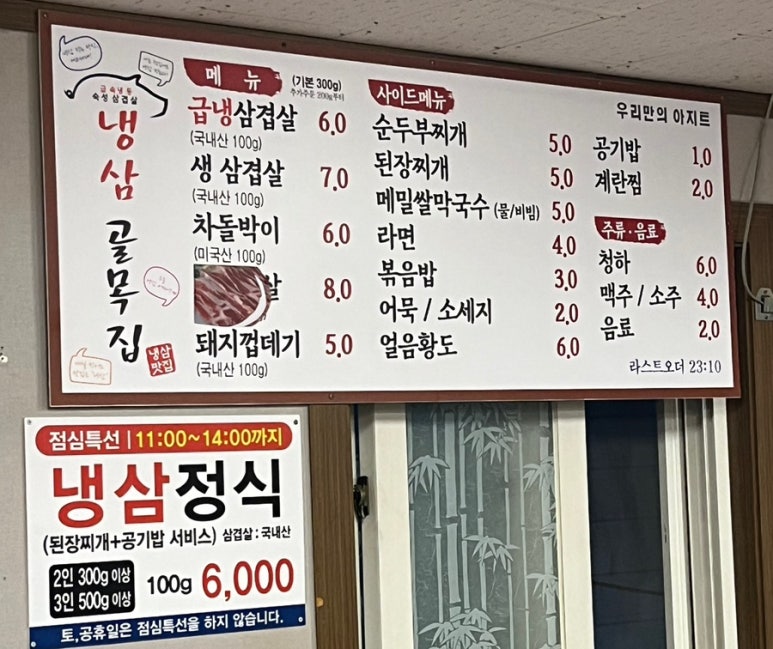 급속냉동
숙성삼겹살
냉삼
골목집
냉삼
맛집
메뉴
(기본 300g)
추가주문 200g부터
급냉삼겹살 6.0
(국내산 100g)
생 삼겹살 7.0
(국내산 100g)
차돌박이 6.0
(미국산 100g)
살 8.0
돼지껍데기 5.0
(국내산 100g)
사이드메뉴
순두부찌개 5.0
된장찌개 5.0
메밀쌀막국수 (물/비빔) 5.0
라면 4.0
볶음밥 3.0
어묵 / 소세지 2.0
얼음황도 6.0
우리만의 아지트
공기밥 1.0
계란찜 2.0
주류·음료
청하 6.0
맥주 / 소주 4.0
음료 2.0
라스트오더 23:10
점심특선 | 11:00~14:00까지
냉삼정식
(된장찌개+공기밥 서비스) 삼겹살 : 국내산
2인 300g 이상
3인 500g 이상
100g 6,000
토,공휴일은 점심특선을 하지 않습니다.